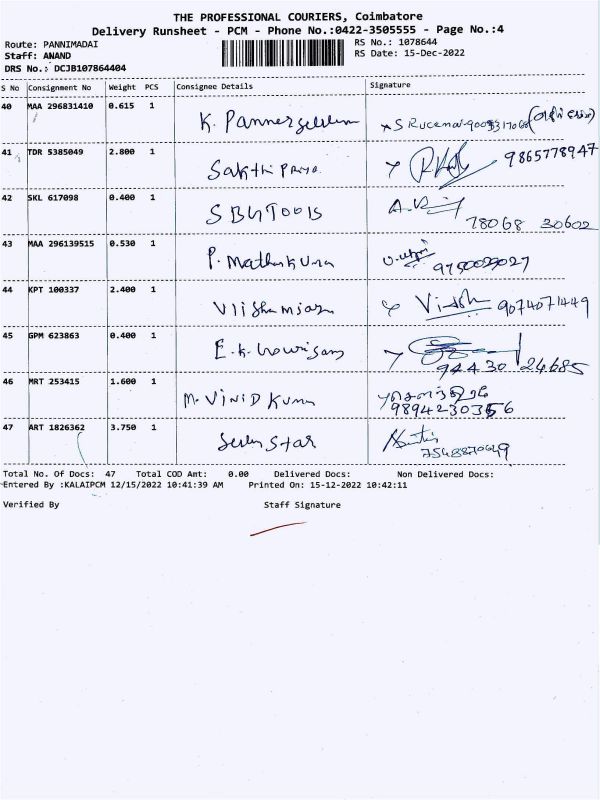 THE PROFESSIONAL COURIERS, Coimbatore
Delivery Runsheet - PCM - Phone No.:0422-3505555 - Page No.:4
Route: PANNIMADAI
Staff: ANAND
DRS No.: DCJB107864404
RS No.: 1078644
RS Date: 15-Dec-2022
S No Consignment No Weight PCS Consignee Details Signature
40 MAA 296831410 0.615 1 K. Pannerselvam
41 TDR 5385049 2.800 1 Sakthi Priya 9865778947
42 SKL 617098 0.400 1 SBG Tools 78068 30602
43 MAA 296139515 0.530 1 P. Mathankumar 9750029027
44 KPT 100337 2.400 1 9074071449
45 GPM 623863 0.400 1 E.K. 94430 24685
46 MRT 253415 1.600 1 M. VINID Kumar
47 ART 1826362 3.750 1 Star
Total No. Of Docs: 47 Total COD Amt: 0.00 Delivered Docs: Non Delivered Docs:
Entered By :KALAIPCM 12/15/2022 10:41:39 AM Printed On: 15-12-2022 10:42:11
Verified By Staff Signature